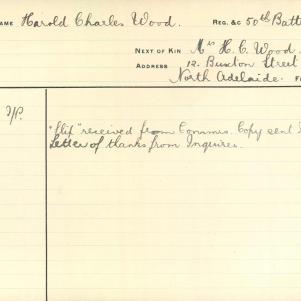 NAME Harold Charles Wood. REG. &C 50th Batt
NEXT OF KIN Mrs H. C. Wood.
ADDRESS 12. Buxton Street
North Adelaide.
"Slip" received from Commrs. Copy sent
Letter of thanks from Inquirer.